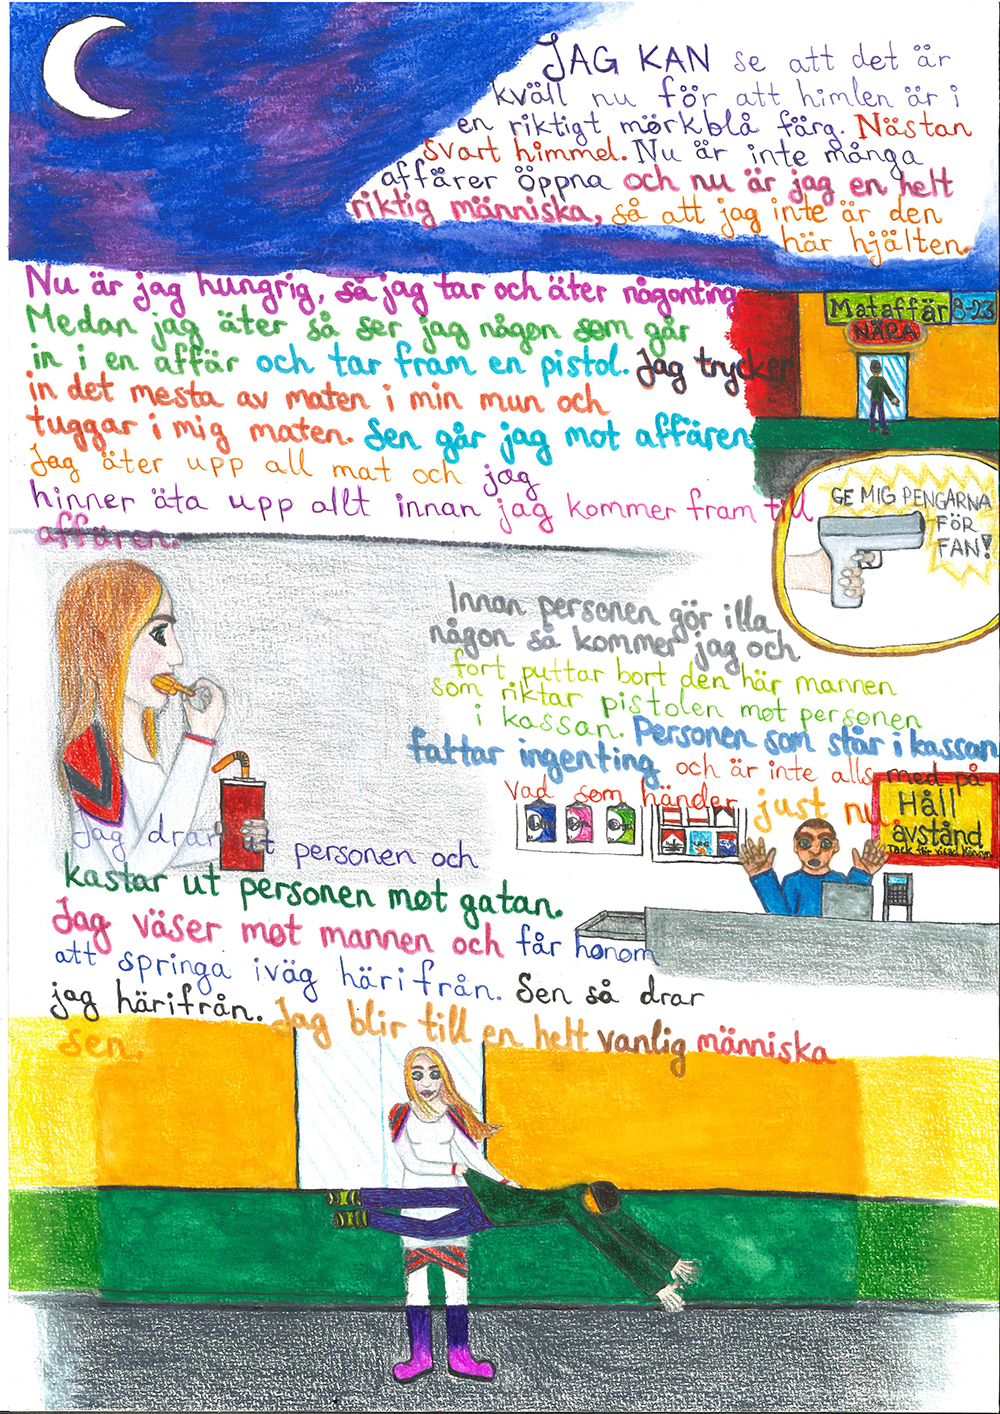 JAG KAN se att det är
kväll nu för att himlen är i
en riktigt mörkblå färg. Nästan
svart himmel. Nu är inte många
affärer öppna och nu är jag en helt
riktig människa, så att jag inte är den
här hjälten.
Nu är jag hungrig, så jag tar och äter någonting
Medan jag äter så ser jag någon som går
in i en affär och tar fram en pistol. Jag trycker
in det mesta av maten i min mun och
tuggar i mig maten. Sen går jag mot affären
Jag äter upp all mat och jag
hinner äta upp allt innan jag kommer fram till
affären.
Mataffär 8-23
NÄRA
GE MIG PENGARNA
FÖR
FAN!
Innan personen gör illa
någon så kommer jag och
fort puttar bort den här mannen
som riktar pistolen mot personen
i kassan. Personen som står i kassan
fattar ingenting och är inte alls med på
vad som händer just nu.
Håll
avstånd
Tack för visad hänsyn
Jag drar ut personen och
kastar ut personen mot gatan.
Jag väser mot mannen och får honom
att springa iväg härifrån. Sen så drar
jag härifrån. Jag blir till en helt vanlig människa
sen.